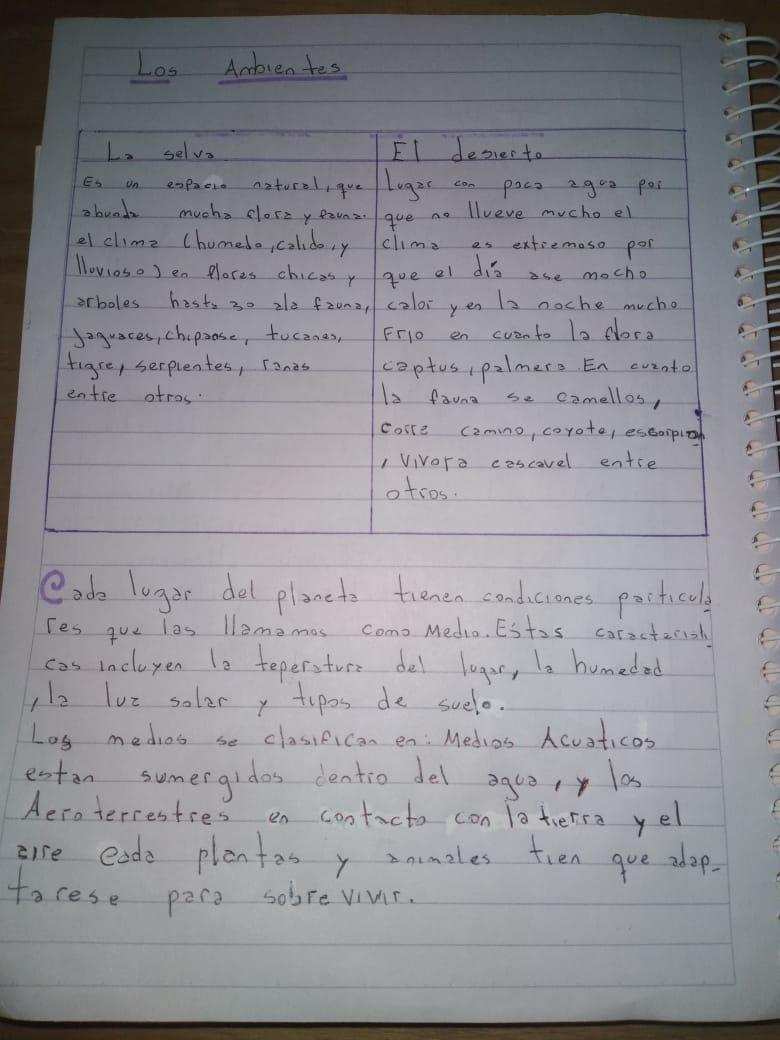 Los Ambientes
La selva
Es un espacio natural, que
abunda mucha flora y fauna.
el clima (humedo, calido, y
lluvioso) en flores chicas y
arboles hasta 30 ala fauna,
jaguares, chipanse, tucanes,
tigre, serpientes, ranas
entre otros.
El desierto
Lugar con poca agua por
que no llueve mucho el
clima es extremoso por
que el día ase mocho
calor y en la noche mucho
Frio en cuanto la flora
captus, palmera. En cuanto
la fauna se camellos,
corre camino, coyote, escorpion
, vivora cascavel entre
otros.
Cada lugar del planeta tienen condiciones particula
res que las llamamos como Medio. Estas caracteristi
cas incluyen la teperatura del lugar, la humedad
, la luz solar y tipos de suelo.
Los medios se clasifican en: Medios Acuaticos
estan sumergidos dentro del agua, y los
Aeroterrestres en contacto con la tierra y el
aire cada plantas y animales tien que adap-
tarese para sobre vivir.